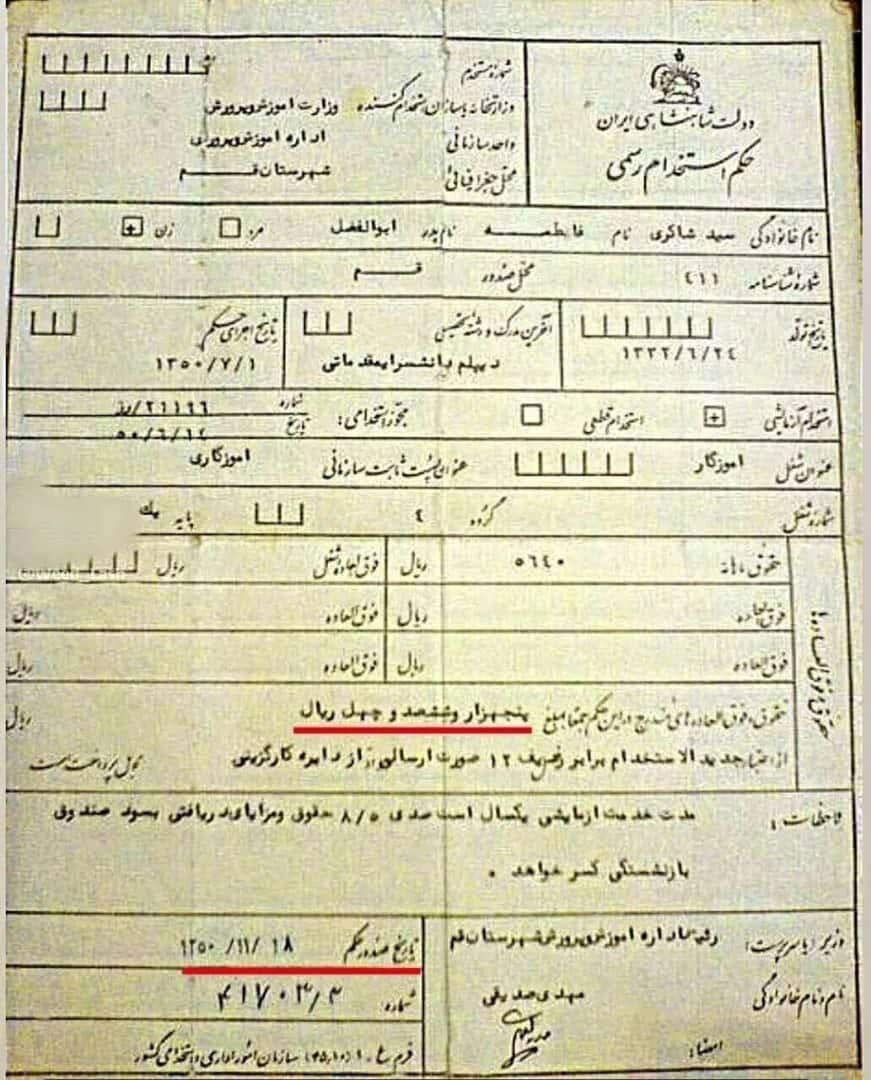 دولت شاهنشاهی ایران
حکم استخدام رسمی
شماره مستخدم
وزارتخانه یا سازمان استخدام کننده وزارت اموزش وپرورش
واحد سازمانی اداره اموزش وپرورش
محل جغرافیائی شهرستان قم
نام خانوادگی سید شاکری نام فاطمه نام پدر ابوالفضل مرد زن
شماره شناسنامه ٤١١ محل صدور قم
تاریخ تولد ١٣٣٢/٦/٢٤
آخرین مدرک و رشته تحصیلی دیپلم دانشسرایمقدماتی
تاریخ اجرای حکم ١٣٥٠/٧/١
استخدام آزمایشی استخدام قطعی مجوز استخدامی: شماره ٢١١٩٦/
تاریخ ٥٠/٦/١٤
عنوان شغل اموزگار عنوان پست ثابت سازمانی اموزگاری
شماره شغل گروه ٤ پایه یک
حقوق و فوق العاده ها
حقوق ماهانه ٥٦٤٠ ریال فوق العاده شغل ریال
فوق العاده ریال فوق العاده ریال
فوق العاده ریال فوق العاده ریال
حقوق و فوق العاده های مندرج در این حکم جمعا بمبلغ پنجهزار وششصد و چهل ریال ریال
از اعتبار جدید الاستخدام برابر ردیف ١٢ صورت ارسالی از دایره کارگزینی قابل پرداخت است
ملاحظات : مدت خدمت ازمایشی یکسال است صدی ٨/٥ حقوق ومزایای دریافتی بسود صندوق
بازنشستگی کسر خواهد .
وزیر (یا سرپرست): رئیس اداره اموزش وپرورش شهرستان قم
نام و نام خانوادگی مهدی صدیقی
امضاء:
تاریخ صدور حکم ١٣٥٠/١١/١٨
شماره ٤١٧٠٣/٣
فرم ع ـ ١ (٤٥,١٠) سازمان امور اداری و استخدامی کشور